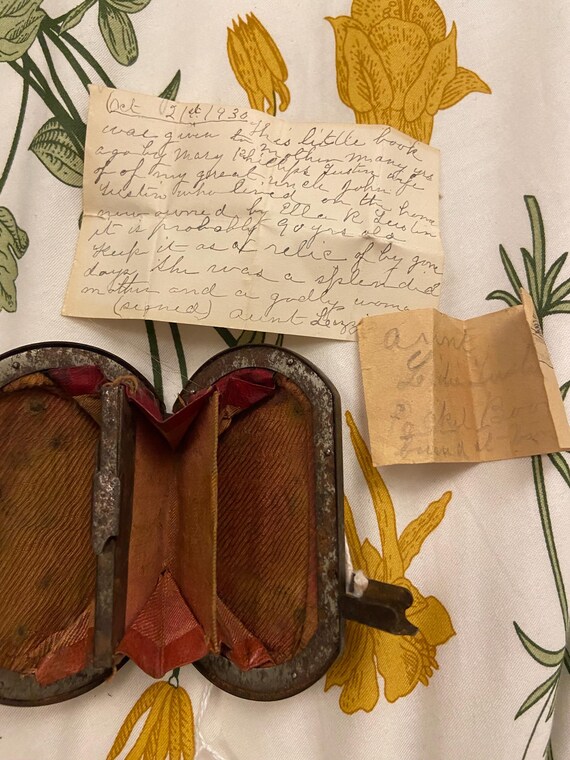 Oct 21st 1930
This little book
was given to mother many yrs
ago by Mary Phillips Justin wife
of of my great, uncle John
who lived on the
now owned by Ella R
it is probably 90 yrs old
Keep it as a relic of by gone
days, She was a splendid
mother and a godly woman
(signed) Aunt
aunt
Pocket Book
found it